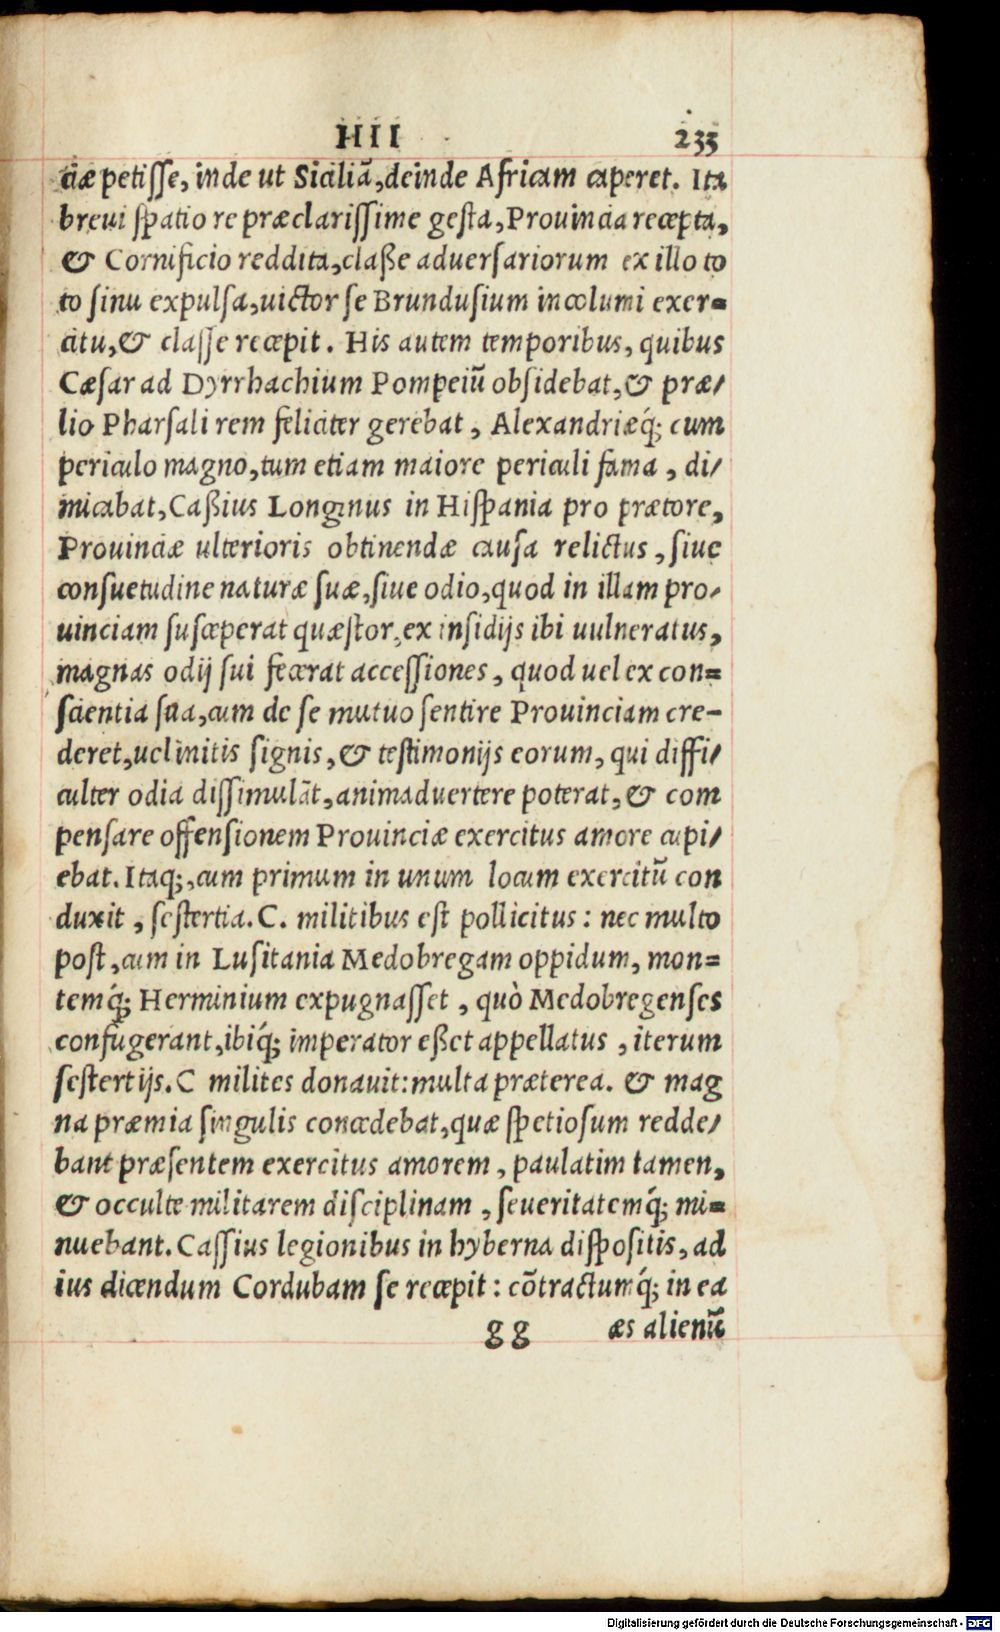 HII 233
ciæ petisse, inde ut Siciliã, deinde Africam caperet. Ita
breui spatio re præclarissime gesta, Prouincia recepta,
& Cornificio reddita, claße aduersariorum ex illo to
to sinu expulsa, uictor se Brundusium incolumi exer=
citu, & classe recepit. His autem temporibus, quibus
Cæsar ad Dyrrhachium Pompeiũ obsidebat, & præ/
lio Pharsali rem feliciter gerebat, Alexandriæq́; cum
periculo magno, tum etiam maiore periculi fama, di/
micabat, Caßius Longinus in Hispania pro prætore,
Prouinciæ ulterioris obtinendæ causa relictus, siue
consuetudine naturæ suæ, siue odio, quod in illam pro/
uinciam susceperat quæstor, ex insidijs ibi uulneratus,
magnas odij sui fecerat accessiones, quod uel ex con=
scientia sua, cum de se mutuo sentire Prouinciam cre-
deret, uel initis signis, & testimonijs eorum, qui diffi/
culter odia dissimulãt, animaduertere poterat, & com
pensare offensionem Prouinciæ exercitus amore cupi/
ebat. Itaq;, cum primum in unum locum exercitũ con
duxit, sestertia. C. militibus est pollicitus: nec multo
post, cum in Lusitania Medobregam oppidum, mon=
temq́; Herminium expugnasset, quò Medobregenses
confugerant, ibiq́; imperator eßet appellatus, iterum
sestertijs. C milites donauit: multa præterea. & mag
na præmia singulis concedebat, quæ spetiosum redde/
bant præsentem exercitus amorem, paulatim tamen,
& occulte militarem disciplinam, seueritatemq́; mi=
nuebant. Cassius legionibus in hyberna dispositis, ad
ius dicendum Cordubam se recepit: cõtractumq́; in ea
gg æs alienũ
Digitalisierung gefördert durch die Deutsche Forschungsgemeinschaft - DFG